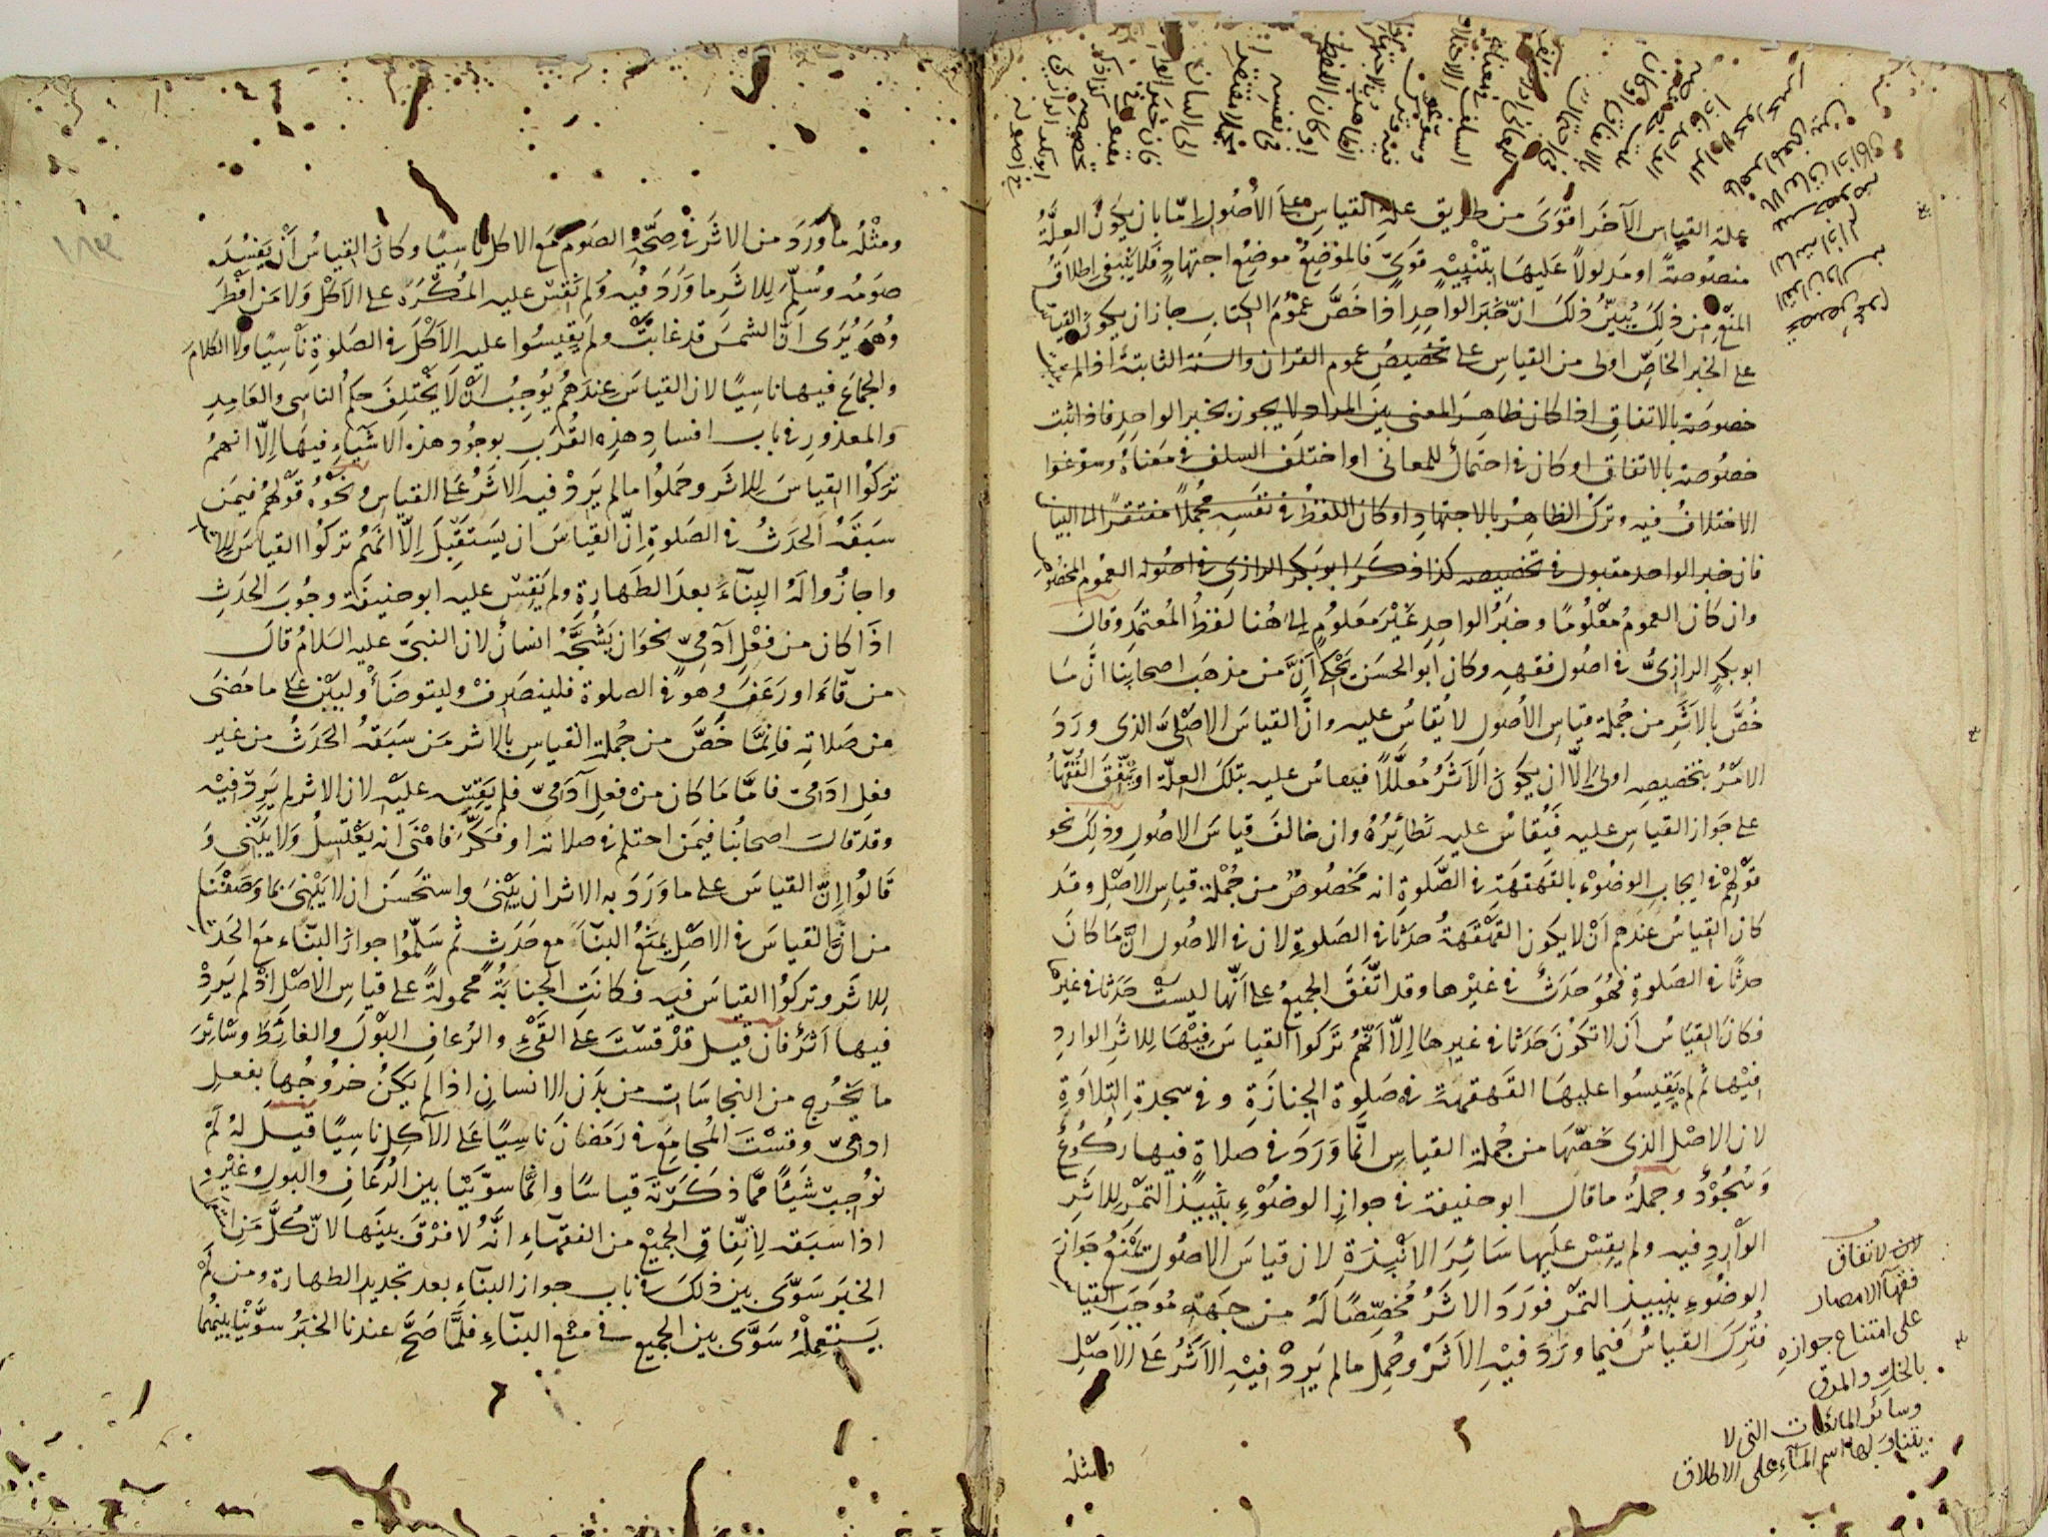 علة القياس الآخر اقوى من طريق علة القياس على الأصول امّا بان يكون العلّة
منصوصةً او مدلولاً عليها بتنبيهٍ قوىّ فالموضع موضع اجتهاد فلا ينبغى اطلاق
المنع من ذلك يُبيّن ذلك انّ خبر الواحد اذا خصّ عموم الكتاب جاز ان يكون القياس
على الخبر الخاصّ اولى من القياس على تخصيص عموم القران والسنة الثابتة اذا لم يثبت
خصوصة بالاتفاق اذا كان ظاهر المعنى بين المراد ولا يجوز بخبر الواحد فاذا ثبت
خصوصة بالاتفاق او كان فى احتمال للمعانى او اختلف السلف فى معناه وسوّغوا
الاختلاف فيه وترك الظاهر بالاجتهاد او كان اللفظ فى نفسه مجملاً مفتقراً الى البيان
فان خبر الواحد مقبول فى تخصيصه كذا ذكر ابو بكر الرازى فى اصوله العموم المخصوص
وان كان العموم معلومًا وخبر الواحد غير معلوم الى هنا لفظ المعتمد وقال
ابو بكر الرازىّ فى اصول فقهه وكان ابو الحسن يحكى انّ من مذهب اصحابنا انّ ما
خُصّ بالاثر من جُملة قياس الأصول لا يُقاس عليه وانّ القياس الاصلىّ الذى ورد
الاثر بتخصيصه اولى الّا ان يكون الاثر مُعلّلاً فيقاس عليه بتلك العلّة او يتّفق الفقهاء
على جواز القياس عليه فيُقاس عليه نظائره وان خالف قياس الاصول وذلك نحو
قولهم فى ايجاب الوضوء بالقهقهة فى الصّلوة انه مخصوص من جُملة قياس الاصل وقد
كان القياس عندهم ان لا يكون القهقهة حدثا فى الصلوة لان فى الاصول انّ ما كان
حدثا فى الصلوة فهو حدث فى غيرها وقد اتّفق الجميع على انّها ليست حدثا فى غيرها
فكان القياس ان لا تكون حدثا فى غيرها الّا انّهم تركوا القياس فيها للاثر الوارد
فيها ثم لم يقيسوا عليها القهقهة فى صلوة الجنازة وفى سجدة التلاوة
لان الاصل الذى خصّها من جُملة القياس انّما ورد فى صلاة فيها ركوع
وسجود وجملة ما قال ابو حنيفة فى جواز الوضوء بنبيذ التمر للاثر
الوارد فيه ولم يقس عليها سائر الانبذة لان قياس الاصول يمنع جواز
الوضوء بنبيذ التمر فورد الاثر مُخصّصًا له من جهة موجب القياس
فتُرك القياس فيما ورد فيه الاثر وحُمل ما لم يرد فيه الاثر على الاصل
ومثله
لان لاتفاق
فقهآ الامصار
على امتناع جوازه
بالخلّ والمرق
وسائر المائعات التى لا
يتناولها اسم المآء على الاطلاق
ومثله ما ورد من الاثر فى صحّة الصوم مع الاكل ناسيًا وكان القياس ان يفسد
صومه وسُلّم للاثر ما ورد فيه ولم نقس عليه المُكره على الاكل ولا من افطر
وهو يُرى انّ الشمس قد غابت ولم يقيسوا عليه الأكل فى الصلوة ناسيًا ولا الكلام
والجماع فيها ناسيًا لان القياس عندهم يُوجب ان لا يختلف حكم الناسى والعامد
والمعذور فى باب افساد هذه القُرب بوجود هذه الاشياء فيها الّا انهم
تركوا القياس للاثر وحملوا ما لم يرد فيه الاثر على القياس ونحوه قولهم فيمن
سبقه الحدث فى الصلوة انّ القياس ان يستقبل الّا انهم تركوا القياس للاثر
واجازوا له البنآء بعد الطهارة ولم يقس عليه ابو حنيفة وجوب الحدث
اذا كان من فعل آدمىّ نحو ان يشُجّه انسان لان النبىّ عليه السلام قال
من قآء او رعف وهو فى الصلوة فلينصرف وليتوضأ وليبن على ما مضى
من صلاته فانّما خصّ من جُملة القياس بالاثر من سبقه الحدث من غير
فعل ادمىّ فامّا ما كان من فعل آدمىّ فلم يقسه عليه لان الاثر لم يرد فيه
وقد قالت اصحابنا فيمن احتلم فى صلاته او فكّر فامنى انه يغتسل ولا يبنى و
قالوا انّ القياس على ما ورد به الاثر ان يبنى واستحسن ان لا يبنى بما وصفنا
من انّ القياس فى الاصل يمنع البنآء مع حدث ثم سلّموا جواز البنآء مع الحدث
للاثر وتركوا القياس فيه فكانت الجنابة محمولة على قياس الاصل اذ لم يرد
فيها اثر فان قيل قد قست على القىء والرعاف البول والغائط وسائر
ما يخرج من النجاسات من بدن الانسان اذا لم يكن خروجها بفعل
ادمىّ وقست المُجامع فى رمضان ناسيًا على الآكل ناسيًا قيل له لم
نوجب شيئا ممّا ذكرته قياسًا وانّما سوّينا بين الرعاف والبول وغيره
اذا سبقه لاتّفاق الجميع من الفقهآء انّه لا فرق بينها لانّ كلّ من اثبت
الخبر سوّى بين ذلك فى باب جواز البنآء بعد تجديد الطهارة ومن لم
يستعمله سوّى بين الجميع فى منع البنآء فلمّا صحّ عندنا الخبر سوّينا بينهما